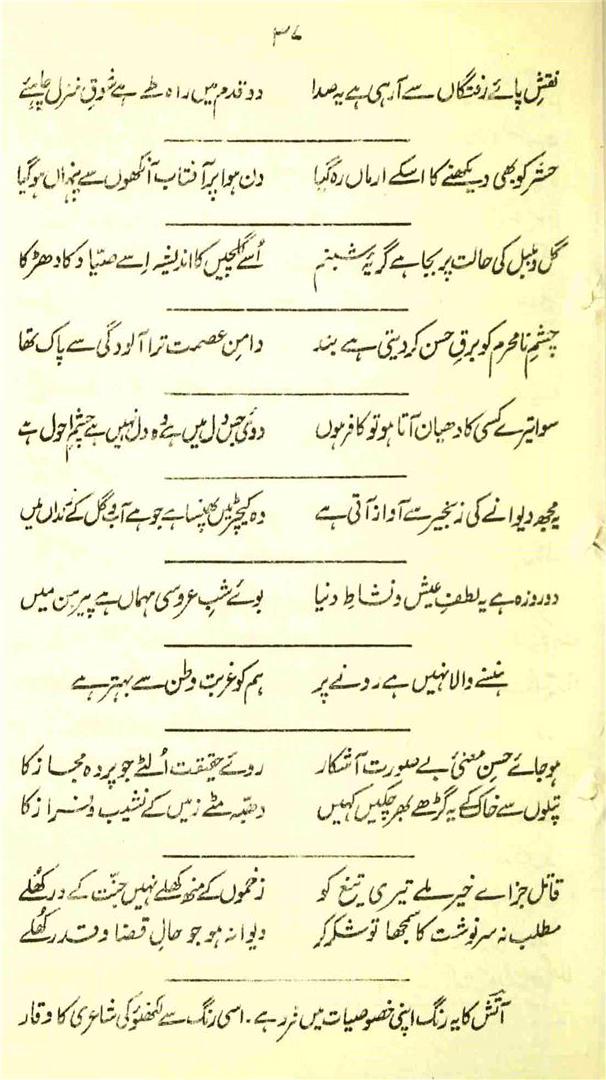 ۳۷
نقشِ پائے رفتگاں سے آ رہی ہے یہ صدا دو قدم میں راہ طے ہے شوقِ منزل چاہئے
حشر کو بھی دیکھنے کا اسکے ارماں رہ گیا دن ہوا پر آفتاب آنکھوں سے پنہاں ہو گیا
گل و بلبل کی حالت پر بجا ہے گریۂ شبنم اُسے گلچیں کا اندیشہ اِسے صیّاد کا دھڑکا
چشمِ نامحرم کو برقِ حسن کر دیتی ہے بند دامنِ عصمت ترا آلودگی سے پاک تھا
سوا تیرے کسی کا دھیان آتا ہو تو کافر ہوں دوئی جس دل میں ہے وہ دل نہیں ہے چشمِ احول ہے
یہ مجھ دیوانے کی زنجیر سے آواز آتی ہے وہ کیچڑ میں پھنسا ہے جو ہے آب و گل کے زنداں میں
دو روزہ ہے یہ لطفِ عیش و نشاطِ دنیا بوئے شبِ عروسی مہماں ہے پیرہن میں
ہنسنے والا نہیں ہے رونے پر ہم کو غربت وطن سے بہتر ہے
ہو جائے حسنِ معنیٔ بے صورت آشکار روئے حقیقت اُلٹے جو پردہ مجاز کا
پتلوں سے خاک کے یہ گڑھے بھر چکیں کہیں دھبّہ مٹے زمیں کے نشیب و فراز کا
قاتل جزاے خیر ملے تیری تیغ کو زخموں کے منھ کھلے نہیں جنّت کے در کھُلے
مطلب نہ سرنوشت کا سمجھا تو شکر کر دیوانہ ہو جو حالِ قضا و قدر کھُلے
آتش کا یہ رنگ اپنی خصوصیات میں فرد ہے۔ اسی رنگ سے لکھنؤ کی شاعری کا وقار